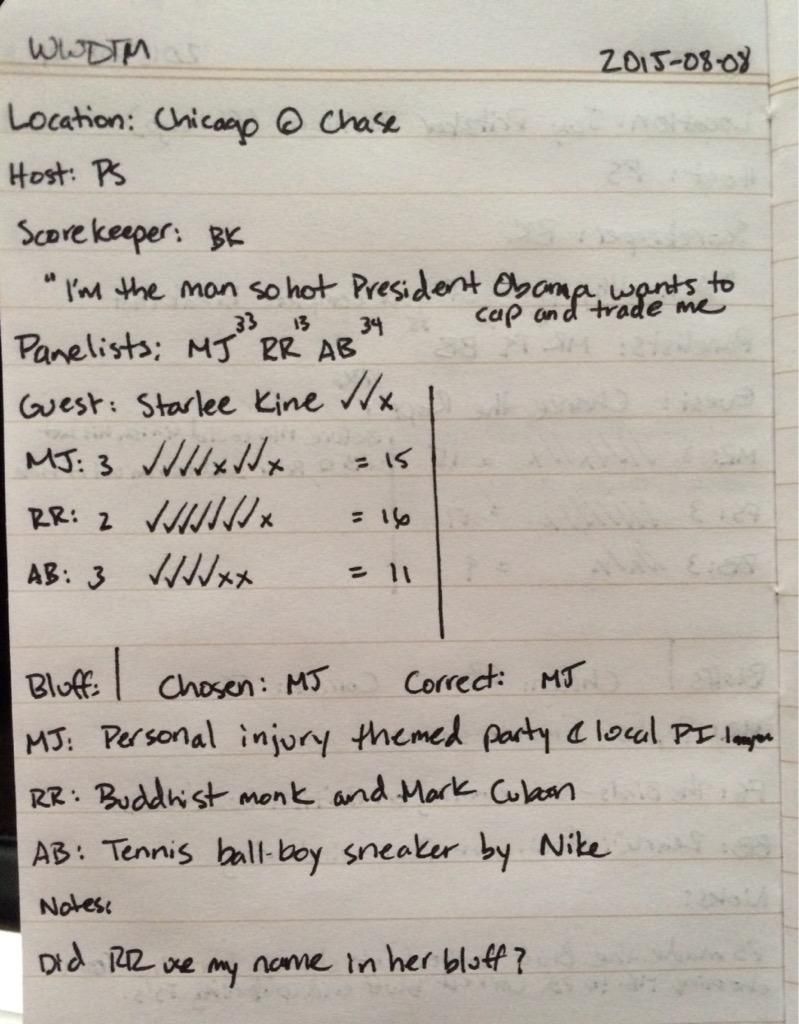 WWDTM 2015-08-08
Location: Chicago @ Chase
Host: PS
Scorekeeper: BK
"I'm the man so hot President Obama wants to
cap and trade me
Panelists: MJ 33 RR 13 AB 34
Guest: Starlee Kine ✓✓x
MJ: 3 ✓✓✓✓x✓✓x = 15
RR: 2 ✓✓✓✓✓✓✓x = 16
AB: 3 ✓✓✓✓xx = 11
Bluff: | Chosen: MJ Correct: MJ
MJ: Personal injury themed party & local PI
RR: Buddhist monk and Mark Cuban
AB: Tennis ball-boy sneaker by Nike
Notes:
Did RR use my name in her bluff?